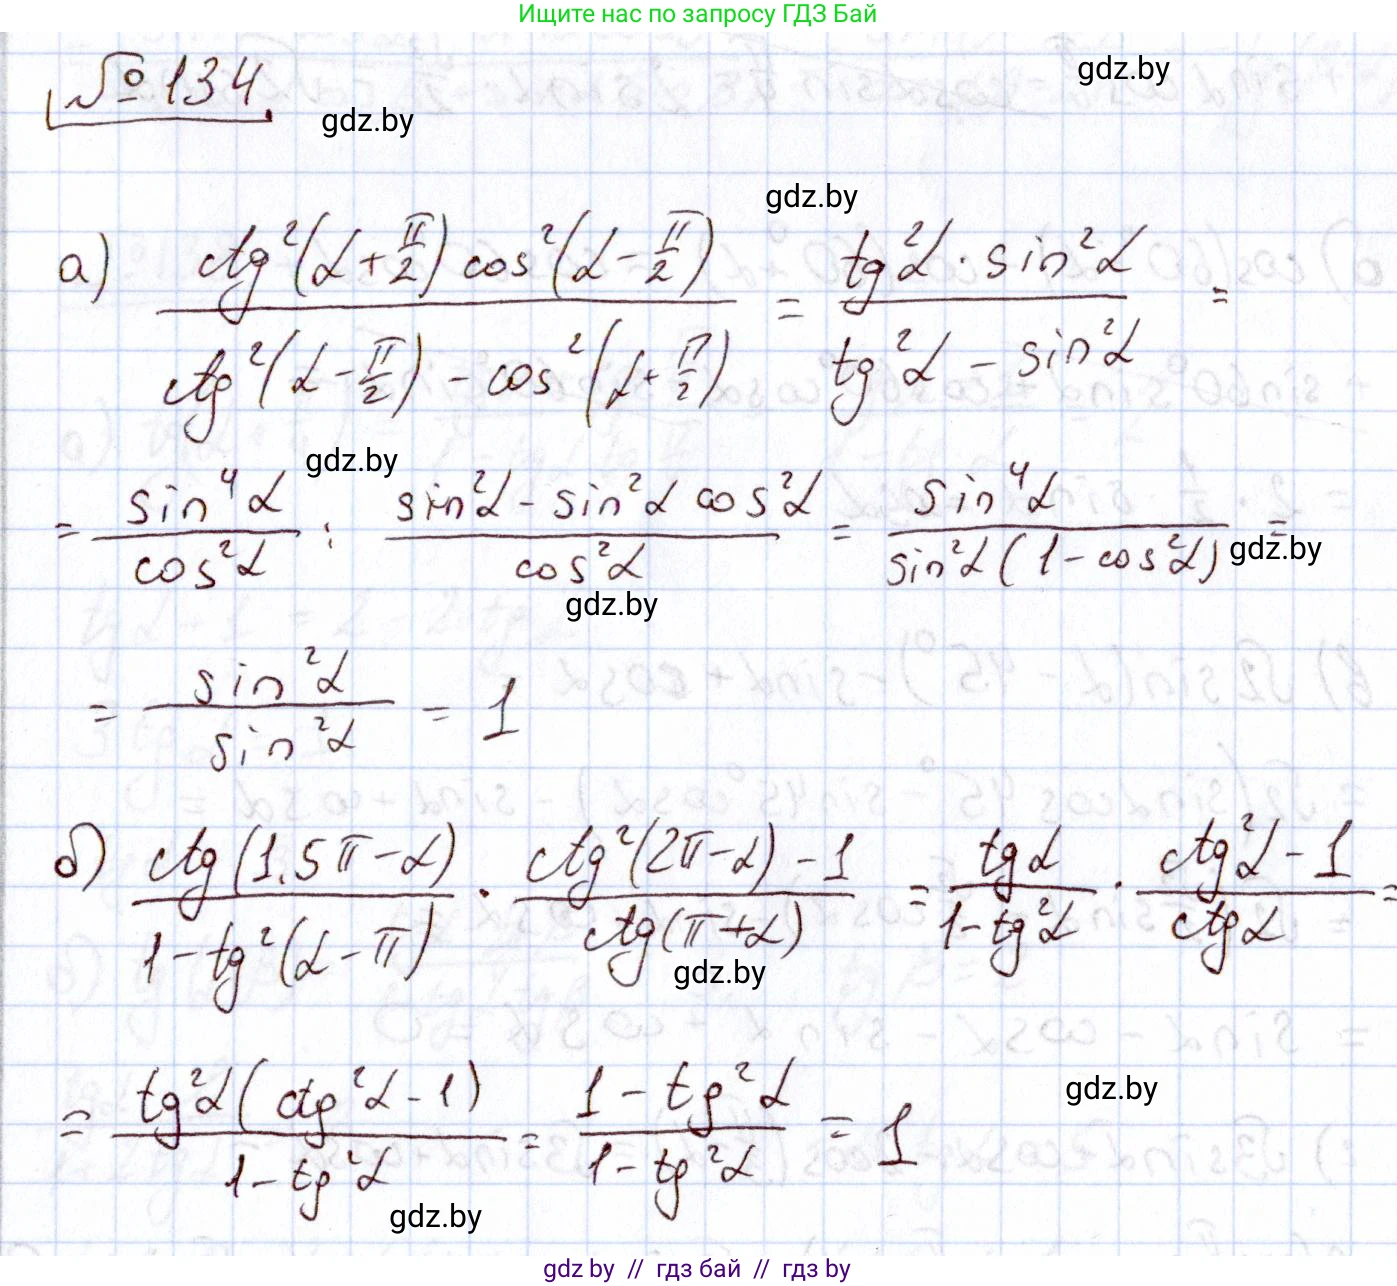 Ищите нас по запросу ГДЗ Бай
№ 134.
gdz.by
gdz.by
gdz.by
а) ctg²(α + π/2) cos²(α − π/2) / ctg²(α − π/2) − cos²(α + π/2) = tg²α · sin²α / tg²α − sin²α =
gdz.by
= sin⁴α / cos²α : sin²α − sin²α cos²α / cos²α = sin⁴α / sin²α (1 − cos²α) =
gdz.by
gdz.by
= sin²α / sin²α = 1
б) ctg(1.5π − α) / 1 − tg²(α − π) · ctg²(2π − α) − 1 / ctg(π + α) = tgα / 1 − tg²α · ctg²α − 1 / ctgα =
gdz.by
= tg²α (ctg²α − 1) / 1 − tg²α = 1 − tg²α / 1 − tg²α = 1
gdz.by
gdz.by
gdz by // гдз бай // гдз by